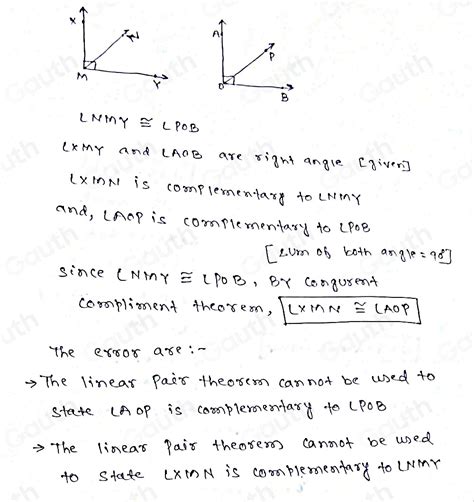 X N A P
M Y O B
∠NMY ≅ ∠POB
∠XMY and ∠AOB are right angle [given]
∠XMN is complementary to ∠NMY
and, ∠AOP is complementary to ∠POB
[sum of both angle = 90°]
since ∠NMY ≅ ∠POB, BY congurent
compliment theorem, ∠XMN ≅ ∠AOP
The error are :-
→ The linear pair theorem cannot be used to
state ∠AOP is complementary to ∠POB
→ The linear pair theorem cannot be used
to state ∠XMN is complementary to ∠NMY